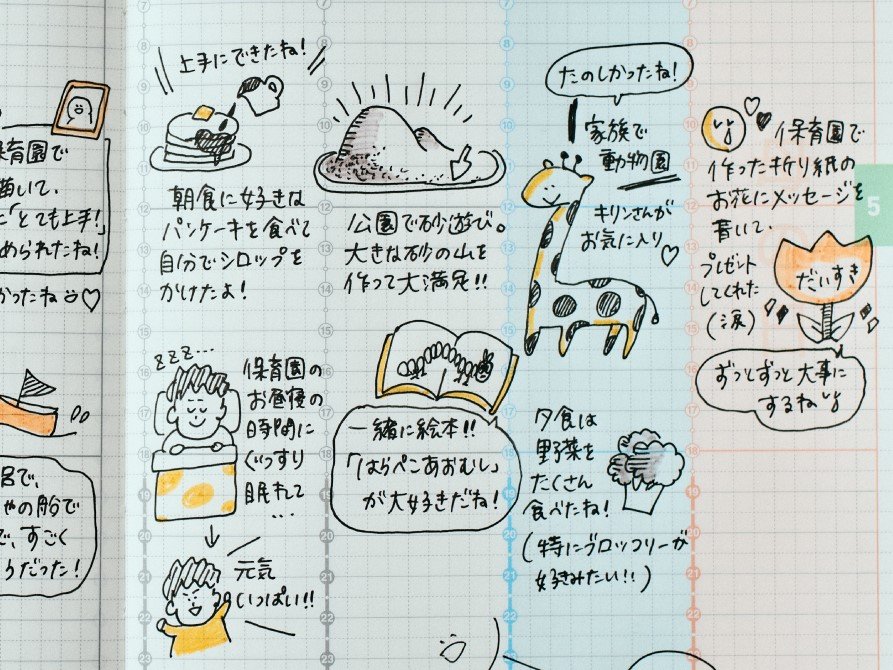 保育園で
描いて、
「とても上手!」
められたね!
かったね
呂で、
ゃの船で
で、すごく
うだった!
上手にできたね!
朝食に好きな
パンケーキを食べて
自分でシロップを
かけたよ!
zzz...
保育園の
お昼寝の
時間に
ぐっすり
眠れて
...
元気
いっぱい!!
公園で砂遊び。
大きな砂の山を
作って大満足!!
一緒に絵本!!
「はらぺこあおむし」
が大好きだね!
たのしかったね!
家族で
動物園
キリンさんが
お気に入り
夕食は
野菜を
たくさん
食べたね!
(特にブロッコリーが
好きみたい!!)
保育園で
作った折り紙の
お花にメッセージを
書いて、
プレゼント
してくれた
(涙)
だいすき
ずっとずっと大事に
するね
5
7
8
9
10
11
12
13
14
15
16
17
18
19
20
21
22
23